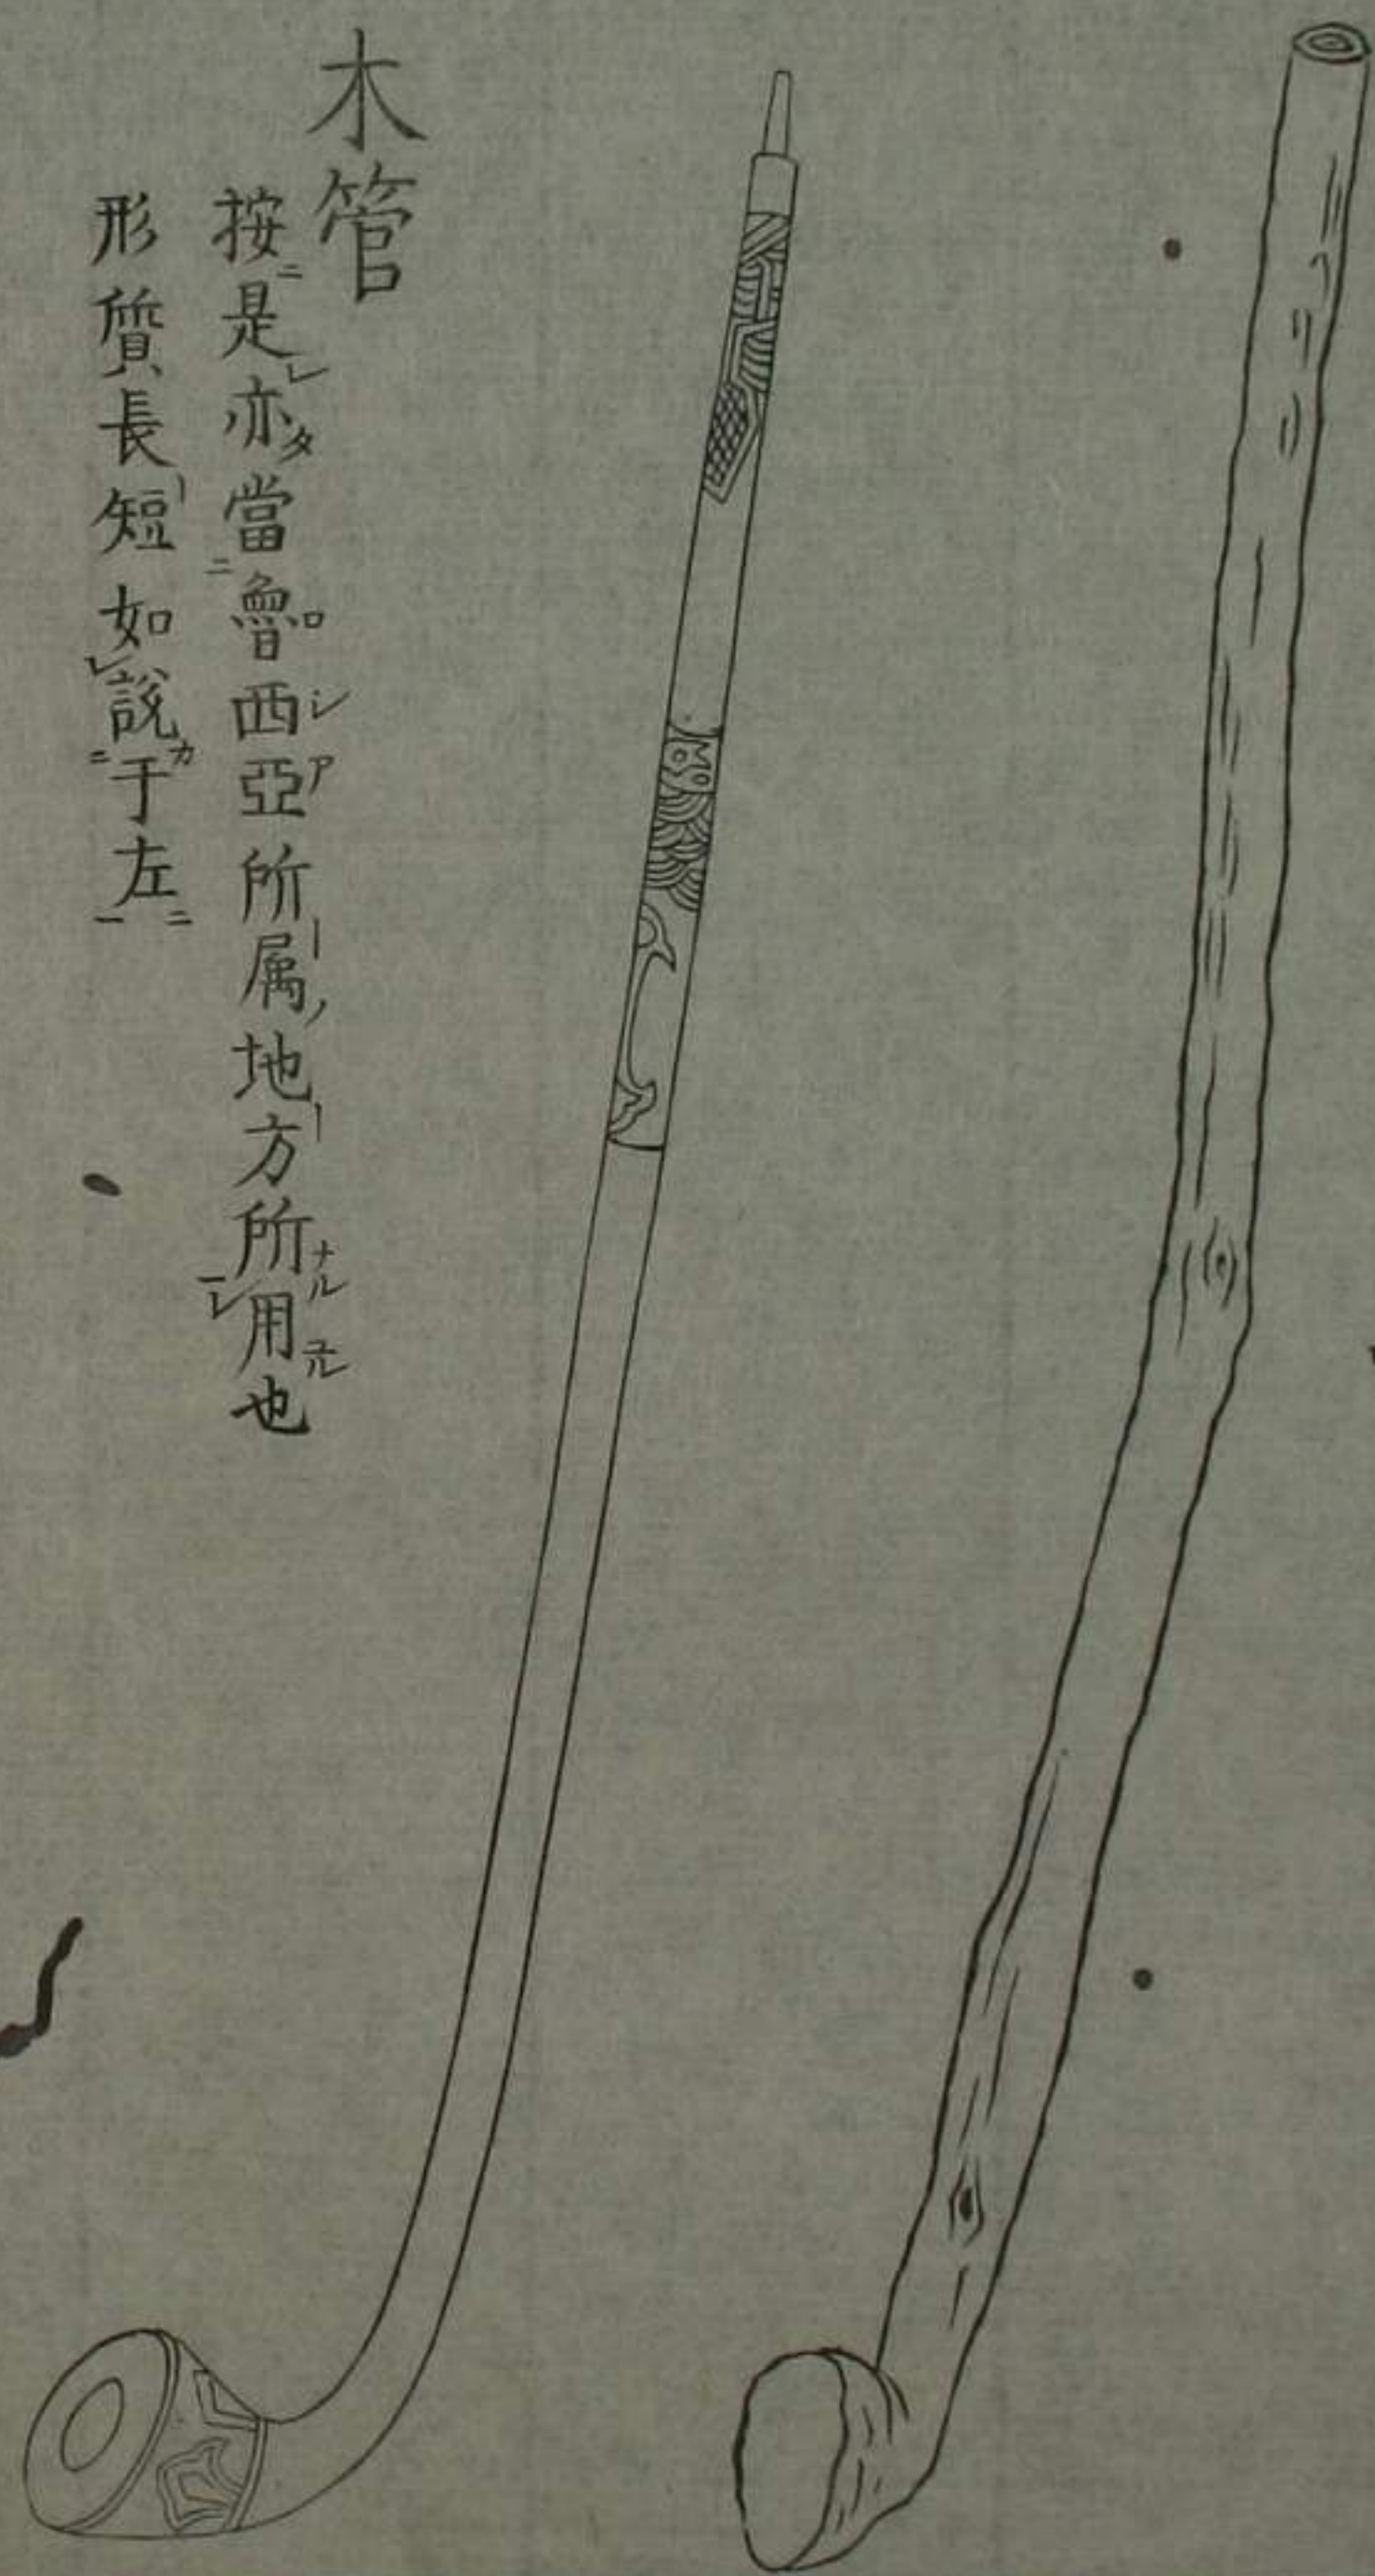 木管
按是亦當魯西亞所属地方所用也
形質長短如說于左